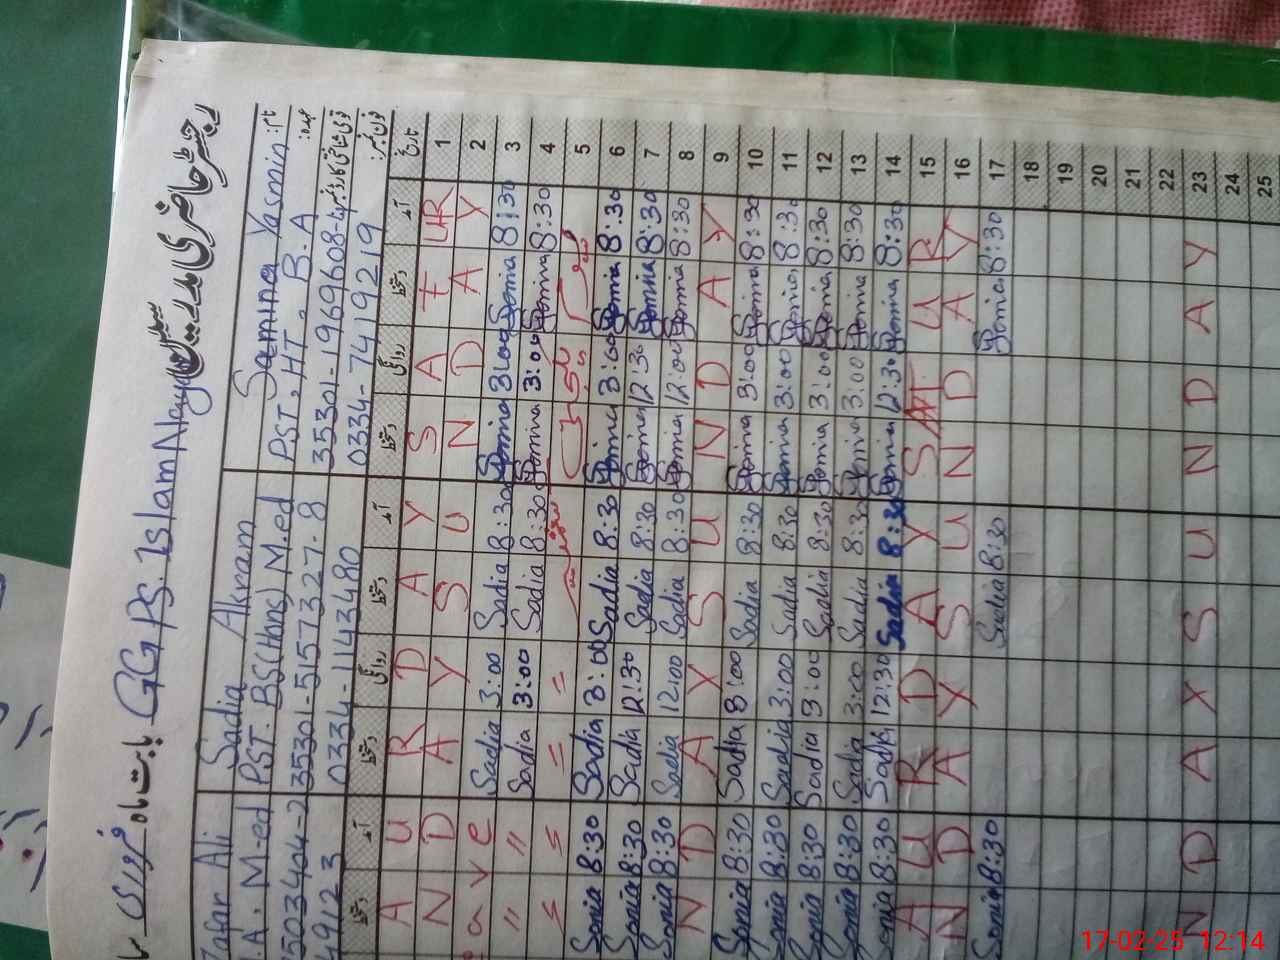 رجسٹر حاضری مدرسین GGPS. Islam Nagar بابت ماہ فروری
Zafar Ali Sadia Akram Samina Yasmin نام:
.A. M-ed PST. BS(Hons) M.ed PST, HT, B.A عہدہ:
7503404-2 35301-5157327-8 35301-1969608-4 قومی شناختی کارڈ نمبر
49123 0334-1143480 0334-7419219 فون نمبر:
دستخط آمد دستخط روانگی دستخط آمد دستخط روانگی دستخط آمد تاریخ
A U R D A Y S A T UR 1
N D A Y S U N D A Y 2
ave Sadia 3:00 Sadia 8:30 Samina 3:00 Samina 8:30 3
" " Sadia 3:00 Sadia 8:30 Samina 3:00 Samina 8:30 4
= = = = 5
Sonia 8:30 Sadia 3:00 Sadia 8:30 Samina 3:00 Samina 8:30 6
Sonia 8:30 Sadia 12:30 Sadia 8:30 Samina 12:30 Samina 8:30 7
Sonia 8:30 Sadia 12:00 Sadia 8:30 Samina 12:00 Samina 8:30 8
N D A Y S U N D A Y 9
Sonia 8:30 Sadia 3:00 Sadia 8:30 Samina 3:00 Samina 8:30 10
Sonia 8:30 Sadia 3:00 Sadia 8:30 Samina 3:00 Samina 8:30 11
Sonia 8:30 Sadia 3:00 Sadia 8:30 Samina 3:00 Samina 8:30 12
Sonia 8:30 Sadia 3:00 Sadia 8:30 Samina 3:00 Samina 8:30 13
Sonia 8:30 Sadia 12:30 Sadia 8:30 Samina 12:30 Samina 8:30 14
A U R D A Y S A T U R 15
N D A Y S U N D A Y 16
Sonia 8:30 Sadia 8:30 Samina 8:30 17
18
19
20
21
22
N D A Y S U N D A Y 23
24
25
17-02-25 12:14